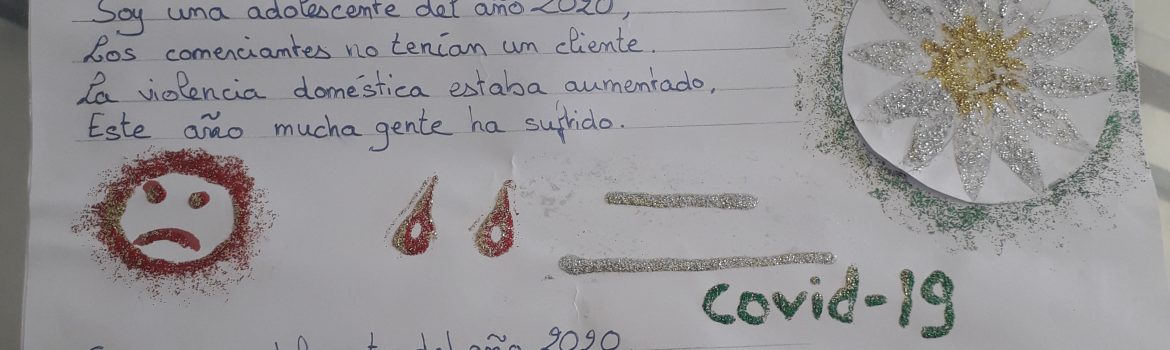 Soy una adolescente del año 2020,
Los comerciantes no tenían un cliente.
La violencia doméstica estaba aumentado,
Este año mucha gente ha sufrido.
covid-19
del año 2020